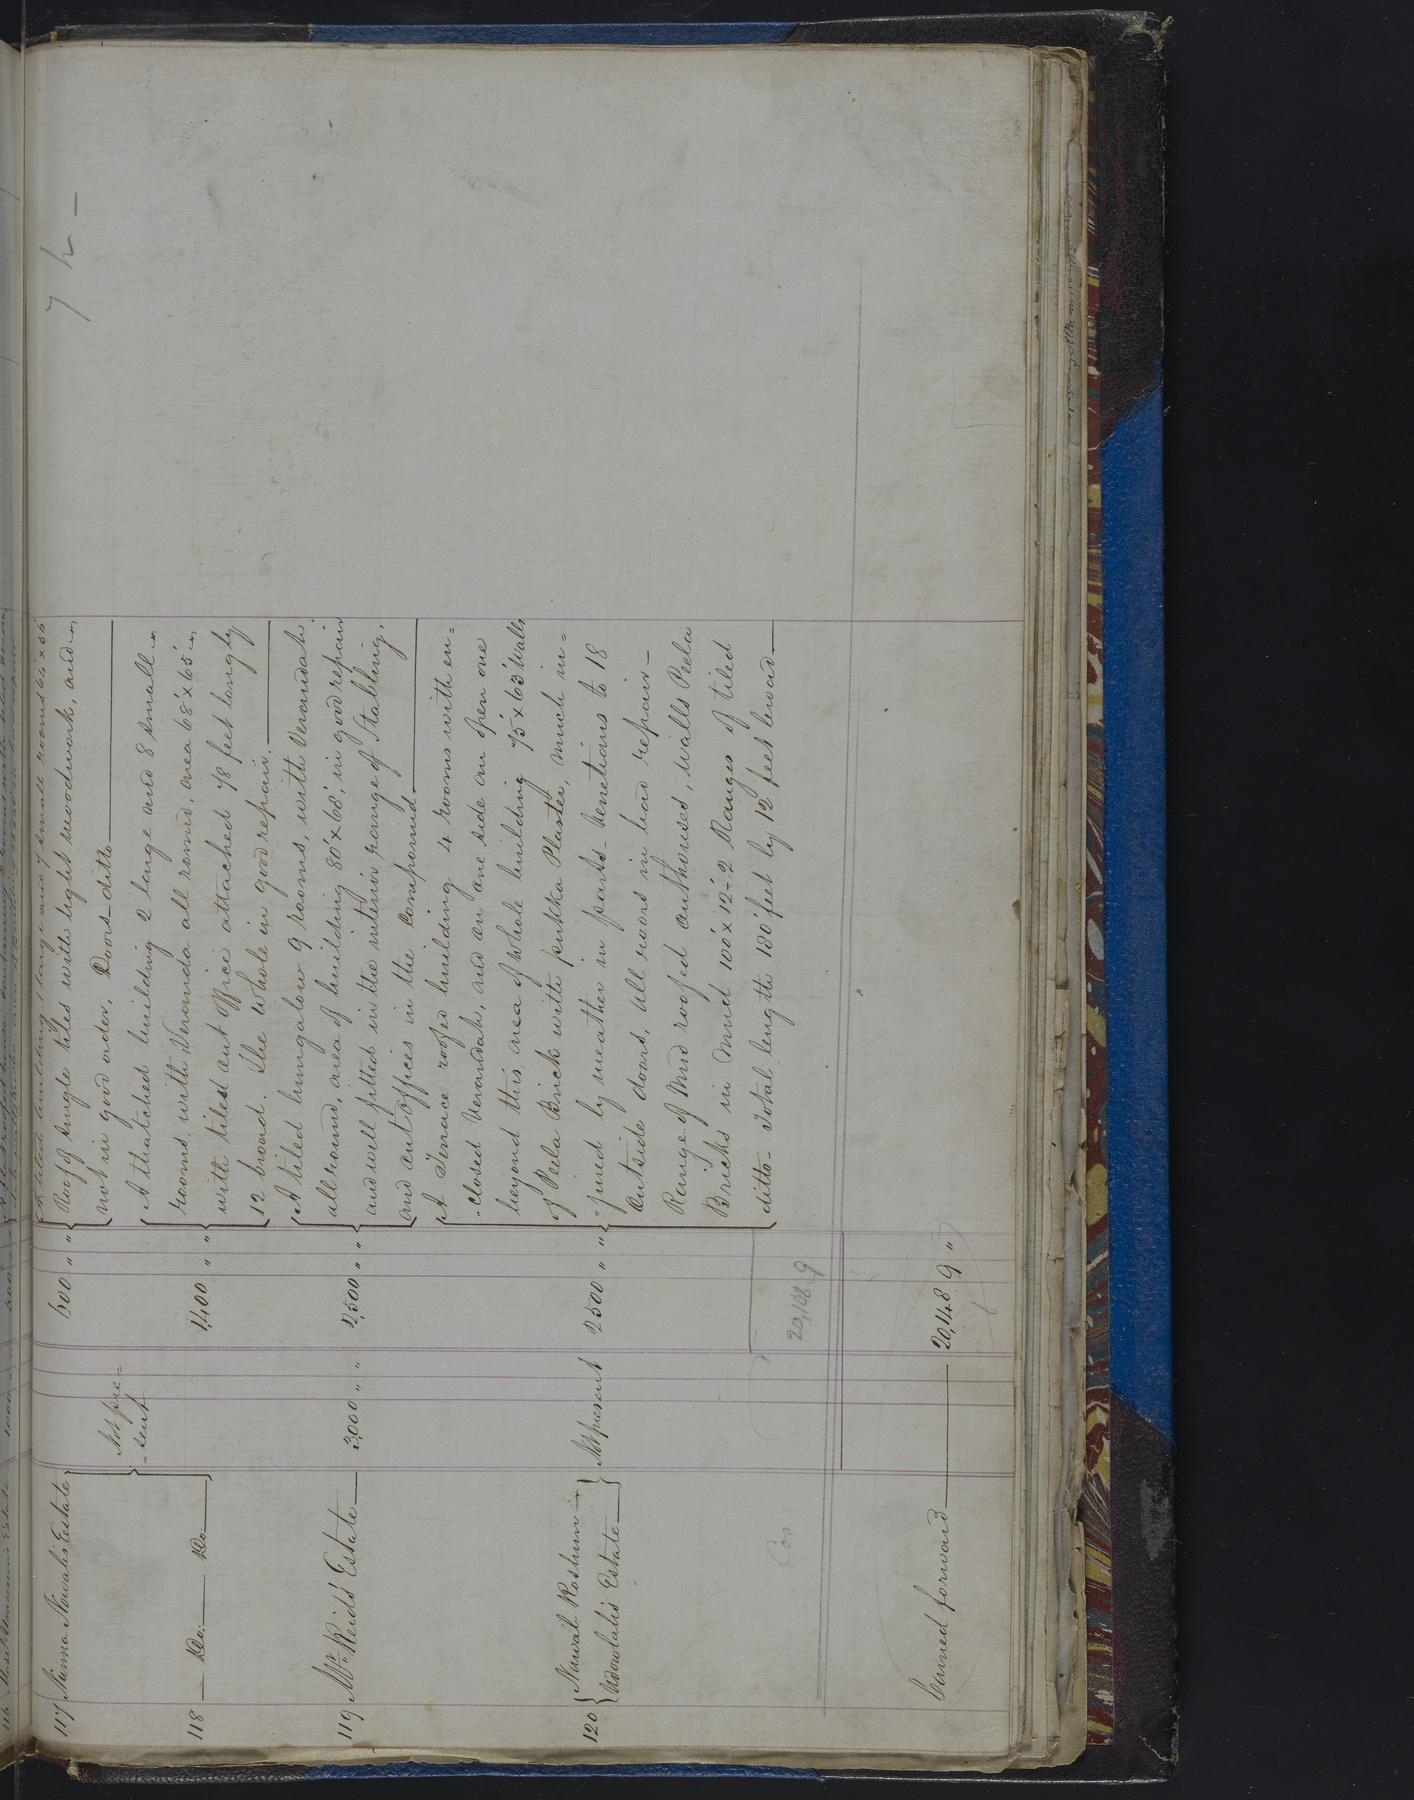 117 Nunna Nowalis Estate
Not pre=
-sent
600 " "
A tiled building 1 large and 7 small rooms 66' x 56'
Roof of single tiles with light woodwork, and
not in good order, Doors ditto
118 Do. Do.
1,400 " "
A thatched building 2 large and 8 small
rooms with Veranda all round, area 68' x 65'
with tiled out office attached 78 feet long by
12 broad. The whole in good repair.
119 Mr. Reid's Estate
3,000 " "
2,500 " "
A tiled bungalow 9 rooms, with Verandah
all round, area of building 80' x 68', in good repair
and well fitted in the interior range of Stabling,
and out offices in the compound
120 Nawab Roshun
Udowlah's Estate
Not present
2500 " "
A Terrace roofed building 4 rooms with en=
-closed Verandah, and on one side an open one
beyond this, area of whole building 75' x 63' Walls
of Peela Brick with pukka Plaster, much in=
"jured by weather in parts. Venetians to 18
outside doors, all doors in bad repair
Range of Mud roofed outhouses, walls Peela
Bricks in Mud 100' x 12' - 2 Ranges of tiled
ditto - total length 180 feet by 12 feet broad
20,148 9
Carried forward 20,148 9 "